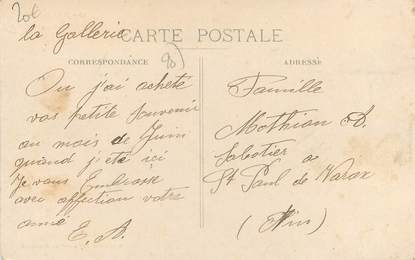 20€
la Gallerie
CARTE POSTALE
CORRESPONDANCE
ADRESSE
Ou j'ai acheté
vos petite souvenir
au mois de Juin
quand j'été ici
Je vous Embrasse
avec affection votre
amie
E. A.
Famille
Mothian A.
Sabotier a
St Paul de Varax
(Ain)